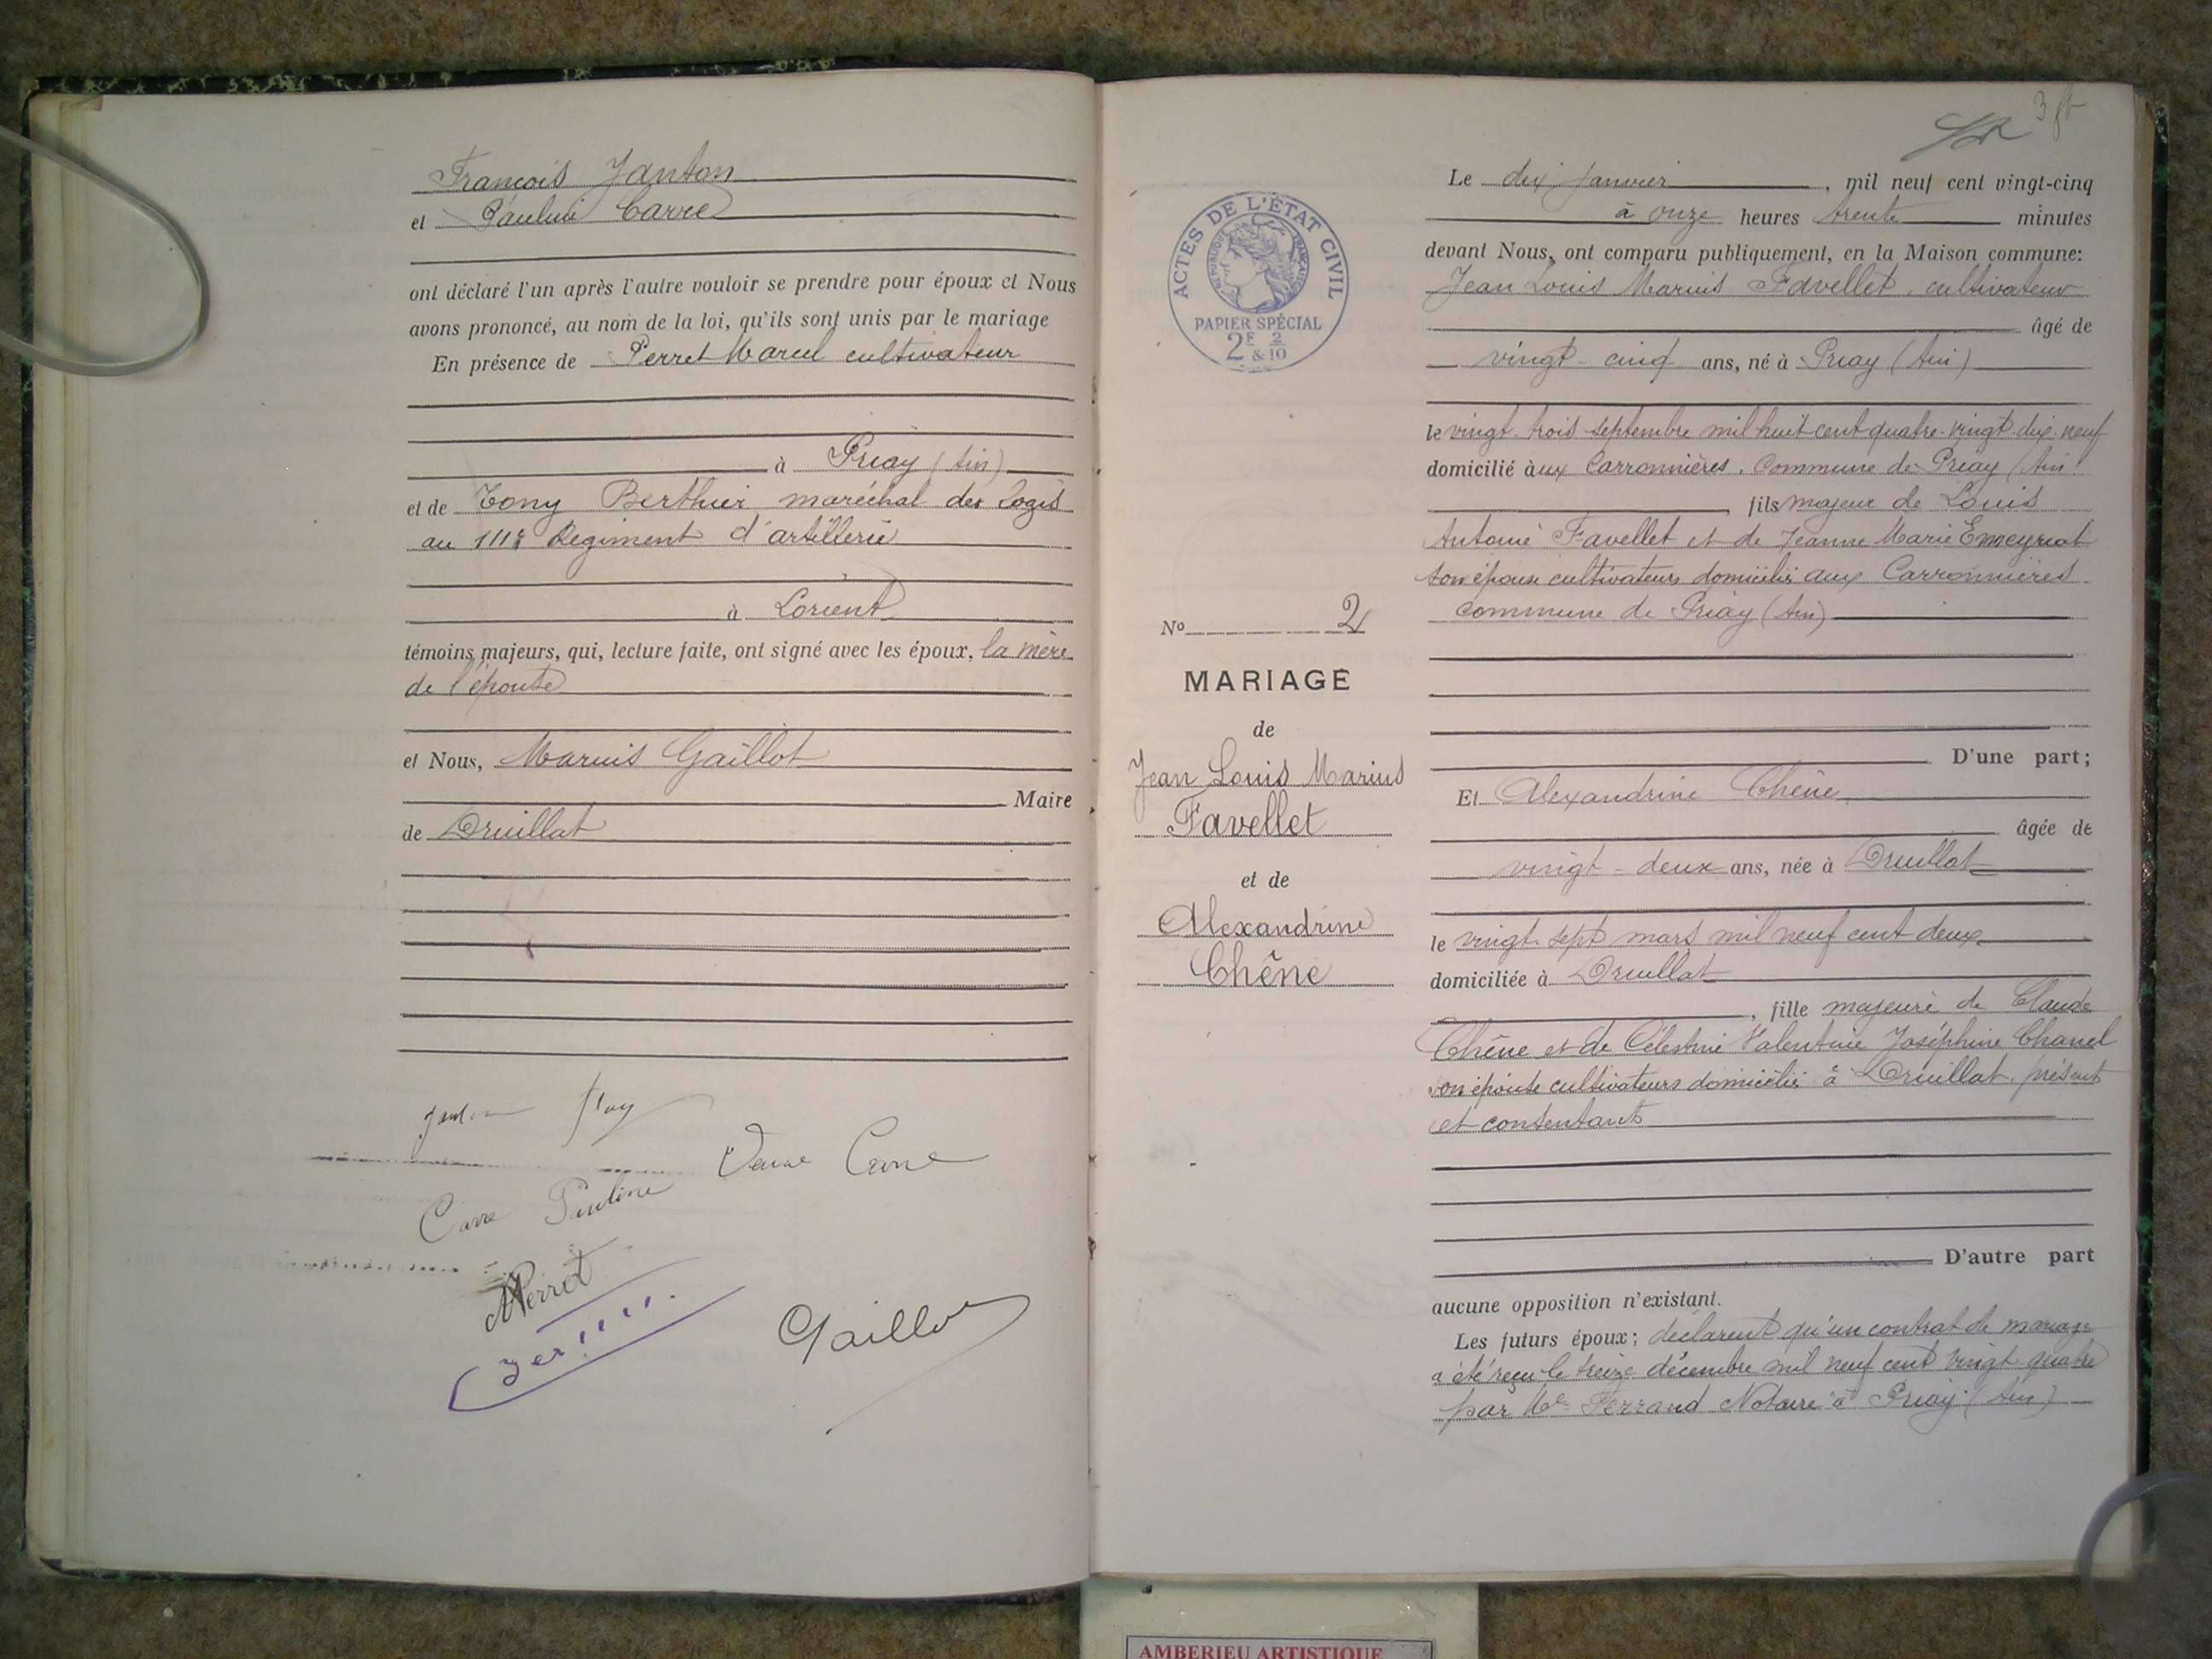 François Janton
et Pauline Carre
ont déclaré l'un après l'autre vouloir se prendre pour époux et Nous
avons prononcé, au nom de la loi, qu'ils sont unis par le mariage
En présence de Perret Marcel cultivateur
à Priay (Ain)
et de Tony Berthier maréchal des Logis
au 111e Régiment d'artillerie
à Lorient
témoins majeurs, qui, lecture faite, ont signé avec les époux, la mère
de l'épouse
et Nous, Marius Gaillot
Maire
de Druillat
Veuve Carre
Carre Pauline
Perret
Gaillot
3
ACTES DE L'ÉTAT CIVIL
RÉPUBLIQUE FRANÇAISE
PAPIER SPÉCIAL
2F 2
& 10
No 2
MARIAGE
de
Jean Louis Marius
Favellet
et de
Alexandrine
Chêne
Le dix janvier, mil neuf cent vingt-cinq
à onze heures trente minutes
devant Nous, ont comparu publiquement, en la Maison commune:
Jean Louis Marius Favellet, cultivateur
âgé de
vingt-cinq ans, né à Priay (Ain)
le vingt-trois septembre mil huit cent quatre-vingt dix-neuf
domicilié aux Carronnières, Commune de Priay (Ain)
fils majeur de Louis
Antoine Favellet et de Jeanne Marie Emeyriat
son épouse cultivateurs domiciliés aux Carronnières
commune de Priay (Ain)
D'une part;
Et Alexandrine Chêne
âgée de
vingt-deux ans, née à Druillat
le vingt-sept mars mil neuf cent deux
domiciliée à Druillat
, fille majeure de Claude
Chêne et de Célestine Valentine Joséphine Chanel
son épouse cultivateurs domiciliés à Druillat, présents
et consentants
D'autre part
aucune opposition n'existant.
Les futurs époux; déclarent qu'un contrat de mariage
a été reçu le treize décembre mil neuf cent vingt quatre
par Me Ferrand Notaire à Priay (Ain)
AMBERIEU ARTISTIQUE